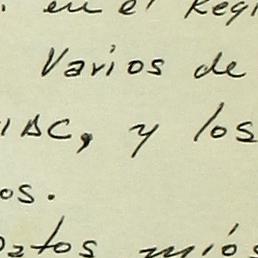 . en el Regi
Varios de
ABC, y los
os.
Datos mios